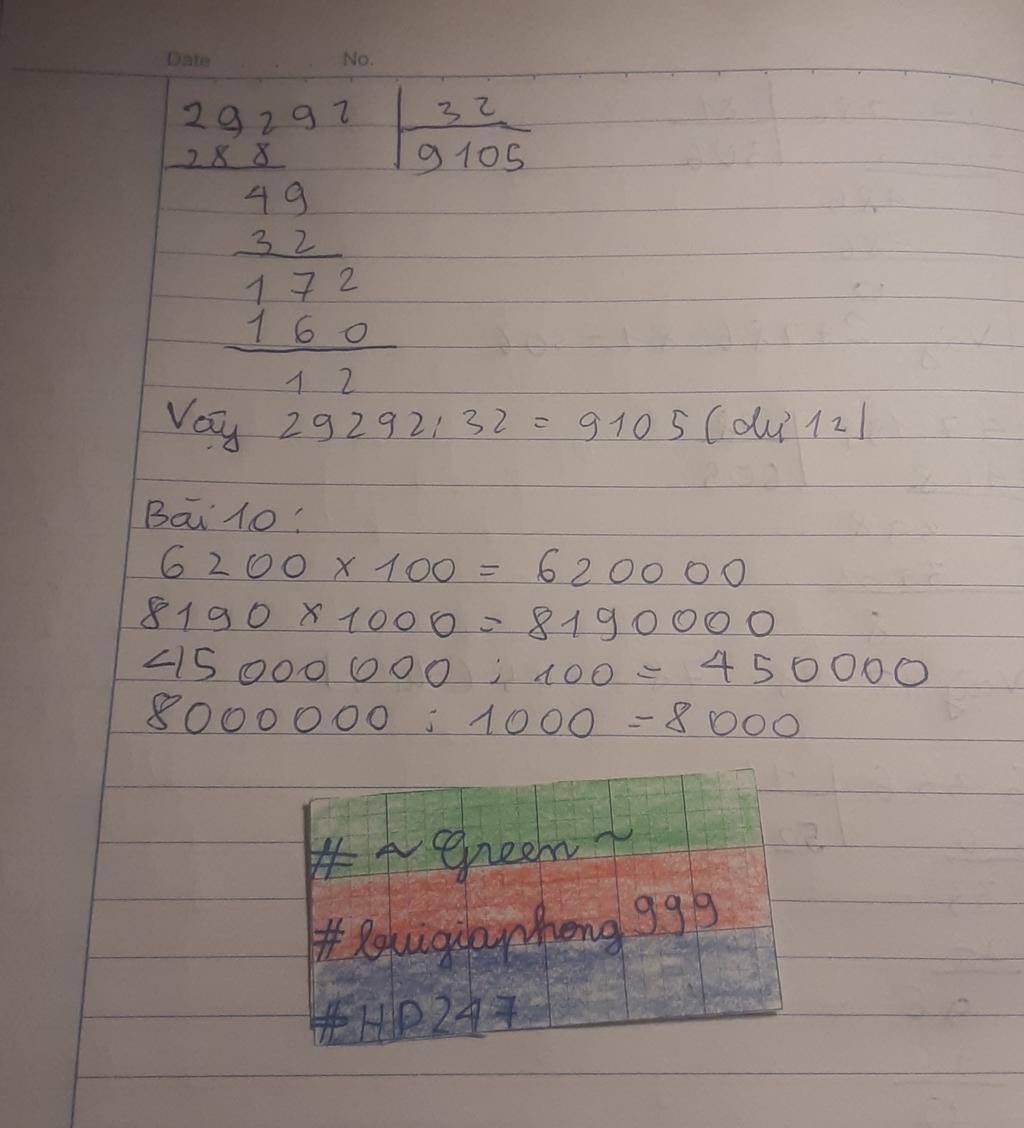 Date No.
29292 32
288 9105
49
32
172
160
12
Vậy 29292 : 32 = 9105 (dư 12)
Bài 10:
6200 x 100 = 620000
8190 x 1000 = 8190000
45 000 000 : 100 = 450000
8000000 : 1000 = 8000
# ~ Green ~
# buigiaphong999
# HD247